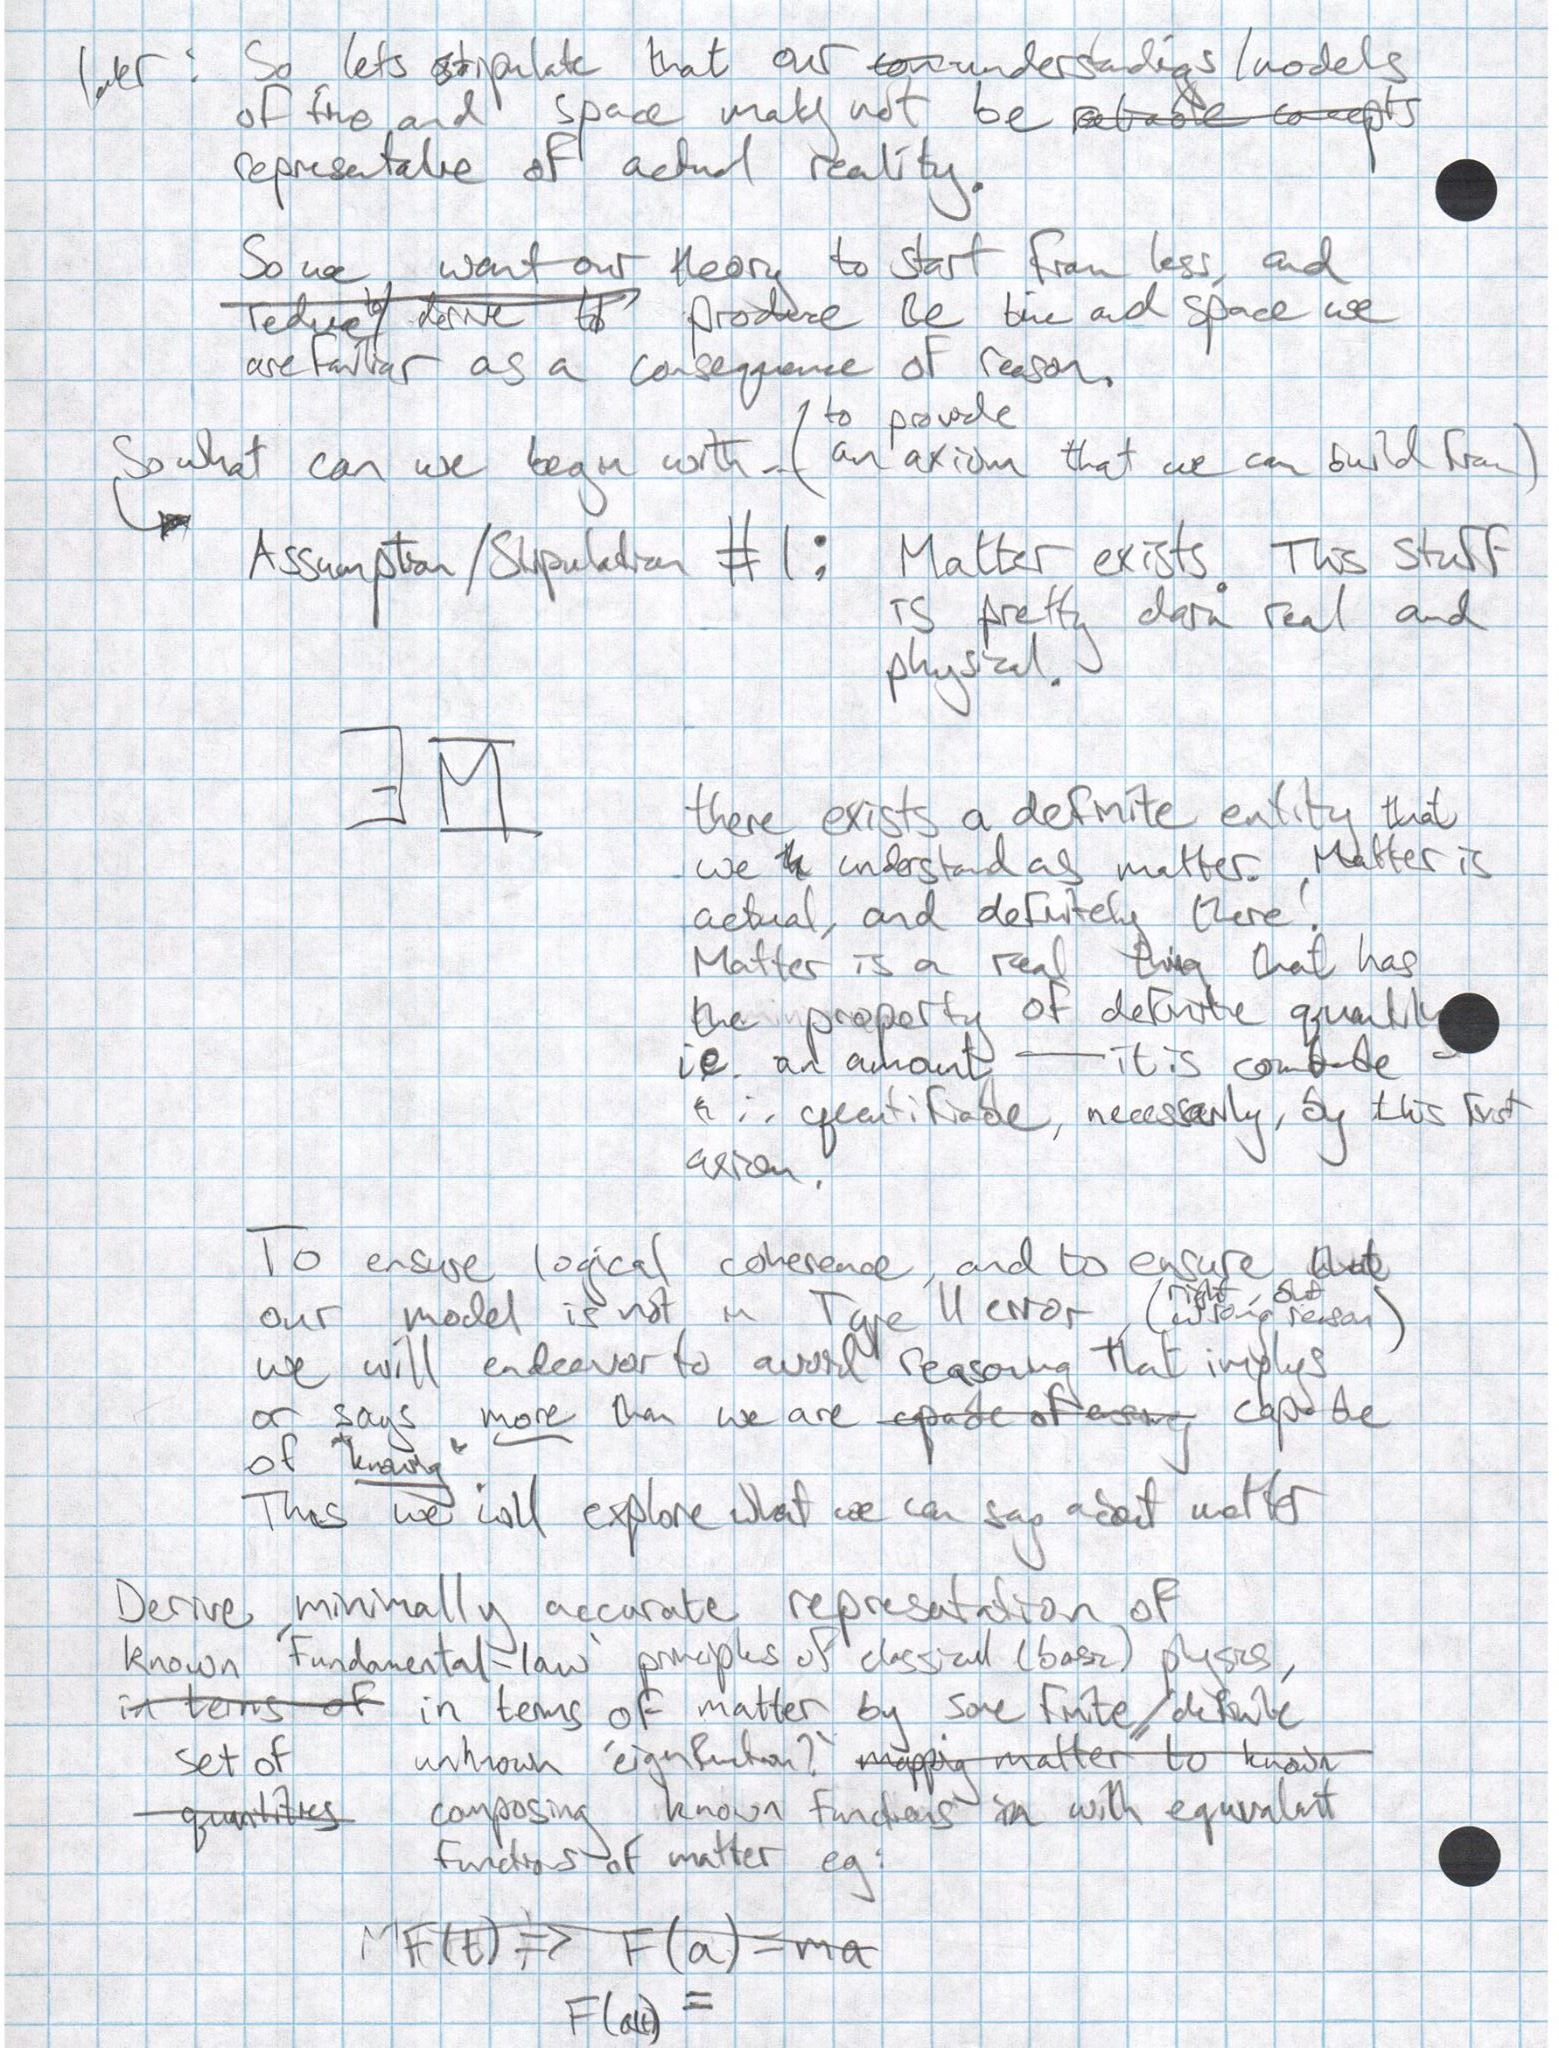 later: So lets stipulate that our understandings/models
of time and space may not be
representative of actual reality.
So we want our theory to start from less, and
reduce to/ derive to produce the time and space we
are familiar as a consequence of reason.
So what can we begin with – (to provide
an axiom that we can build from)
Assumption/Stipulation #1: Matter exists. This stuff
is pretty darn real and
physical.
∃ M
there exists a definite entity that
we understand as matter. Matter is
actual, and definitely there!
Matter is a real thing that has
the property of definite quantity
ie. an amount — it is
∴ quantifiable, necessarily, by this first
axiom.
To ensure logical coherence, and to ensure that
our model is not in Type II error, (right, but
wrong reason)
we will endeavor to avoid reasoning that implys
or says more than we are capable of capable
of "knowing"
Thus we will explore what we can say about matter
Derive, minimally accurate representation of
known 'Fundamental-law' principles of classical (basic) physics,
in terms of in terms of matter by some finite/definite
set of unknown 'eigenfunction?' mapping matter to known
quantities composing known functions in with equivalent
functions of matter eg:
MF(t) => F(a) = ma
F(a(t)) =